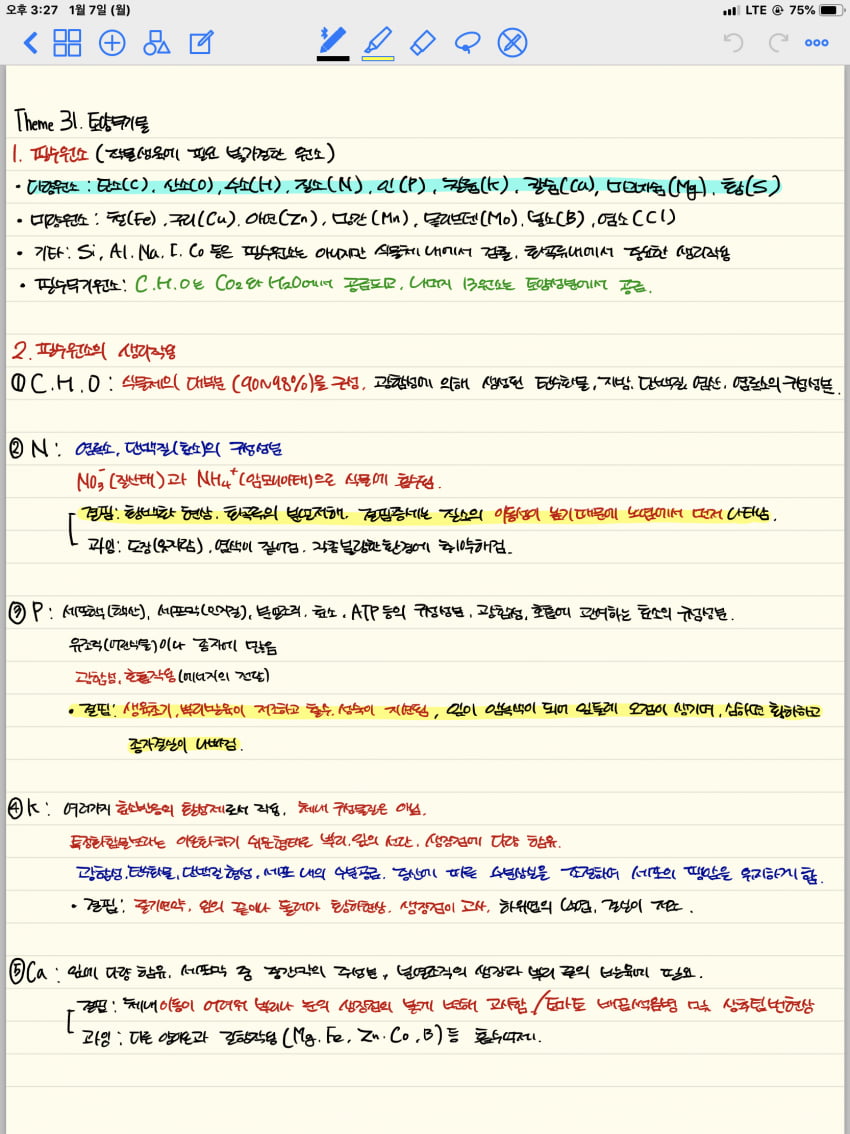 오후 3:27 1월 7일 (월)
LTE 75%
Theme 31. 토양무기물
1. 필수원소 (작물생육에 필요 불가결한 원소)
• 다량원소 : 탄소(C), 산소(O), 수소(H), 질소(N), 인(P), 칼륨(K), 칼슘(Ca), 마그네슘(Mg), 황(S)
• 미량원소 : 철(Fe), 구리(Cu), 아연(Zn), 망간(Mn), 몰리브덴(Mo), 붕소(B), 염소(Cl)
• 기타 : Si, Al, Na, I, Co 등은 필수원소는 아니지만 식물체 내에서 검출, 화곡류내에서 중요한 생리작용
• 필수무기원소: C.H.O는 CO2와 H2O에서 공급되고, 나머지 13원소는 토양성분에서 공급.
2. 필수원소의 생리작용
① C.H.O : 식물체의 대부분 (90~98%)을 구성, 광합성에 의해 생성된 탄수화물, 지방, 단백질, 핵산, 엽록소의 구성성분.
② N : 엽록소, 단백질(효소)의 구성성분
NO3-(질산태)과 NH4+(암모니아태)으로 식물에 흡수됨.
결핍: 황백화 현상, 화곡류의 분얼저해. 결핍증세는 질소의 이동성이 높기때문에 노엽에서 먼저 나타남.
과잉: 도장(웃자람), 엽색이 짙어짐. 각종불량한환경에 취약해짐.
③ P : 세포핵(핵산), 세포막(인지질), 분열조직, 효소, ATP 등의 구성성분, 광합성, 호흡에 관여하는 효소의 구성성분.
유조직(어린식물)이나 종자에 많음
광합성, 호흡작용(에너지의 전달)
• 결핍: 생육초기, 뿌리발육이 저조하고 출수, 성숙이 지연됨, 잎이 암녹색이 되어 잎둘레 오점이 생기며, 심하면 황화하고
종자결실이 나빠짐.
④ K : 여러가지 효소반응의 활성제로서 작용, 체내 구성물질은 아님.
특정화합물보다는 이온화하기 쉬운형태로 뿌리.잎의 선단, 생장점에 다량 함유.
광합성, 탄수화물, 단백질 형성, 세포 내의 수분공급, 증산에 따른 수분상실을 조절하여 세포의 팽압을 유지하게 함.
• 결핍: 줄기연약, 잎의 끝이나 둘레가 황화현상, 생장점이 고사, 하위엽의 낙엽, 결실이 저조.
⑤ Ca : 잎에 다량 함유, 세포막 중 중간막의 주성분, 분열조직의 생장과 뿌리 끝의 발육에 필요.
결핍: 체내이동이 어려워 뿌리나 눈의 생장점의 붉게 변해 고사함 / 토마토 배꼽썩음병 및 상추팁번현상
과잉 : 다른 양이온과 길항작용 (Mg, Fe, Zn, Co, B) 등 흡수억제.